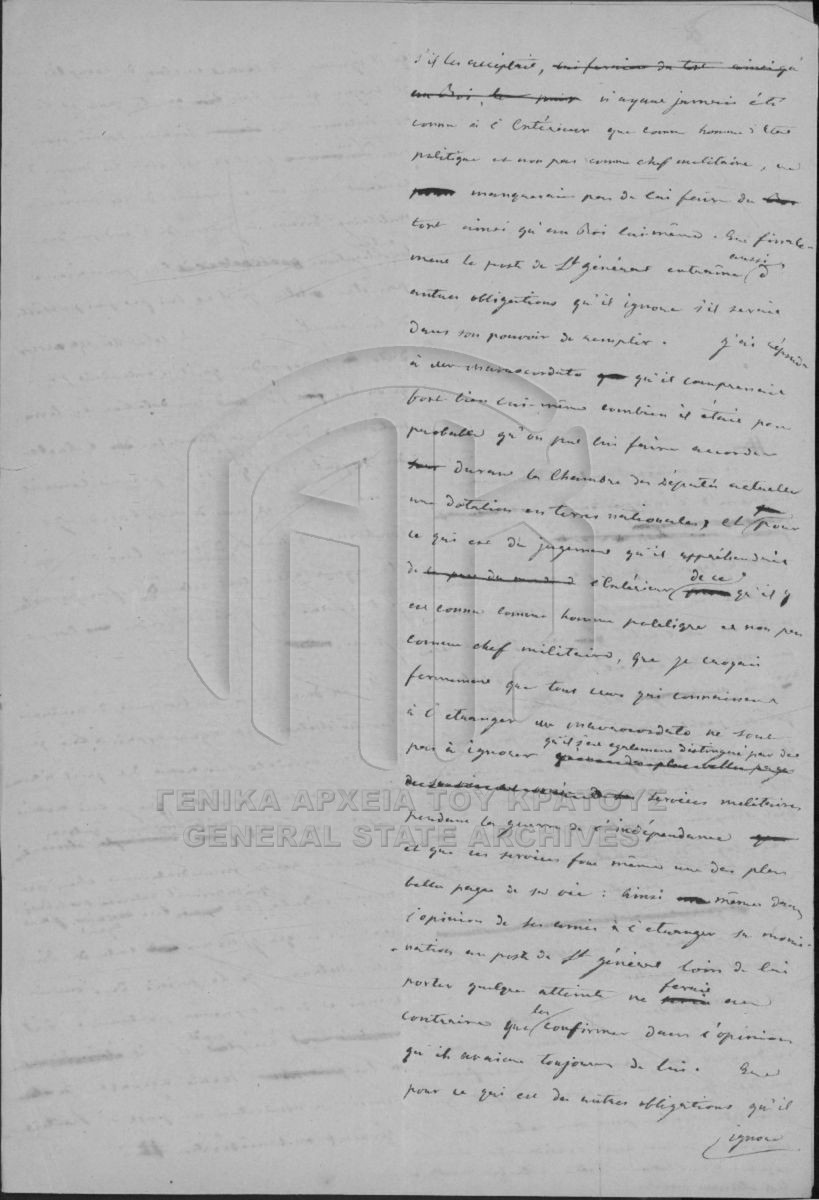 s'il les acceptait, lui feraient du tort ainsi qu'
au Roi, n'ayant jamais été
connu à l'Intérieur que comme homme d'état
politique et non pas comme chef militaire, ne
manquerait pas de lui faire du
tort ainsi qu'au Roi lui-même. Que finale-
ment le poste de Lt général entraîne aussi d'
autres obligations qu'il ignore s'il serait
dans son pouvoir de remplir. J'ai répondu
à Mr Mavrocordato qu'il comprenait
fort bien lui-même combien il était peu
probable qu'on put lui faire accorder
durant la Chambre des Députés actuelle
une dotation en terres nationales, et pour
ce qui est du jugement qu'il appréhendait
de l'Intérieur de ce qu'il y
est connu comme homme politique et non pas
comme chef militaire, que je croyais
fermement que tous ceux qui connaissent
à l'etranger Mr Mavrocordato ne sont
pas à ignorer qu'il s'est egalement distingué par des
services militaires
pendant la guerre de l'indépendance
et que ces services font même une des plus
belles pages de sa vie : Ainsi même dans
l'opinion de ses amis à l'etranger sa nomi-
nation au poste de Lt général loin de lui
porter quelque atteinte ne ferait au
contraire que les confirmer dans l'opinion
qu'ils avaient toujours de lui. Que
pour ce qui est des autres obligations qu'il
ignore
ΓΕΝΙΚΑ ΑΡΧΕΙΑ ΤΟΥ ΚΡΑΤΟΥΣ
GENERAL STATE ARCHIVES